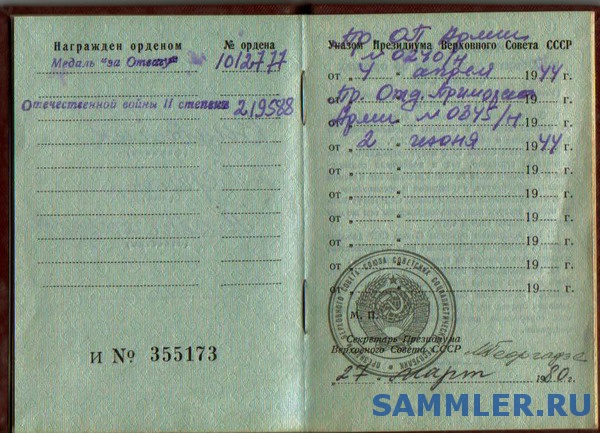 Награжден орденом № ордена
Медаль "за Отвагу" 1012777
Отечественной войны II степени 219588
И № 355173
Указом Президиума Верховного Совета СССР
Пр. ОП Армии
№ 0270/н
от „ 4 “ апреля 1944 г.
Пр. Отд. Приморской
Армии № 0345/н
от „ 2 “ июня 1944 г.
от „ “ 19 г.
от „ “ 19 г.
от „ “ 19 г.
от „ “ 19 г.
от „ “ 19 г.
от „ “ 19 г.
М. П.
Секретарь Президиума
Верховного Совета СССР
27. март 1980 г.
SAMMLER.RU